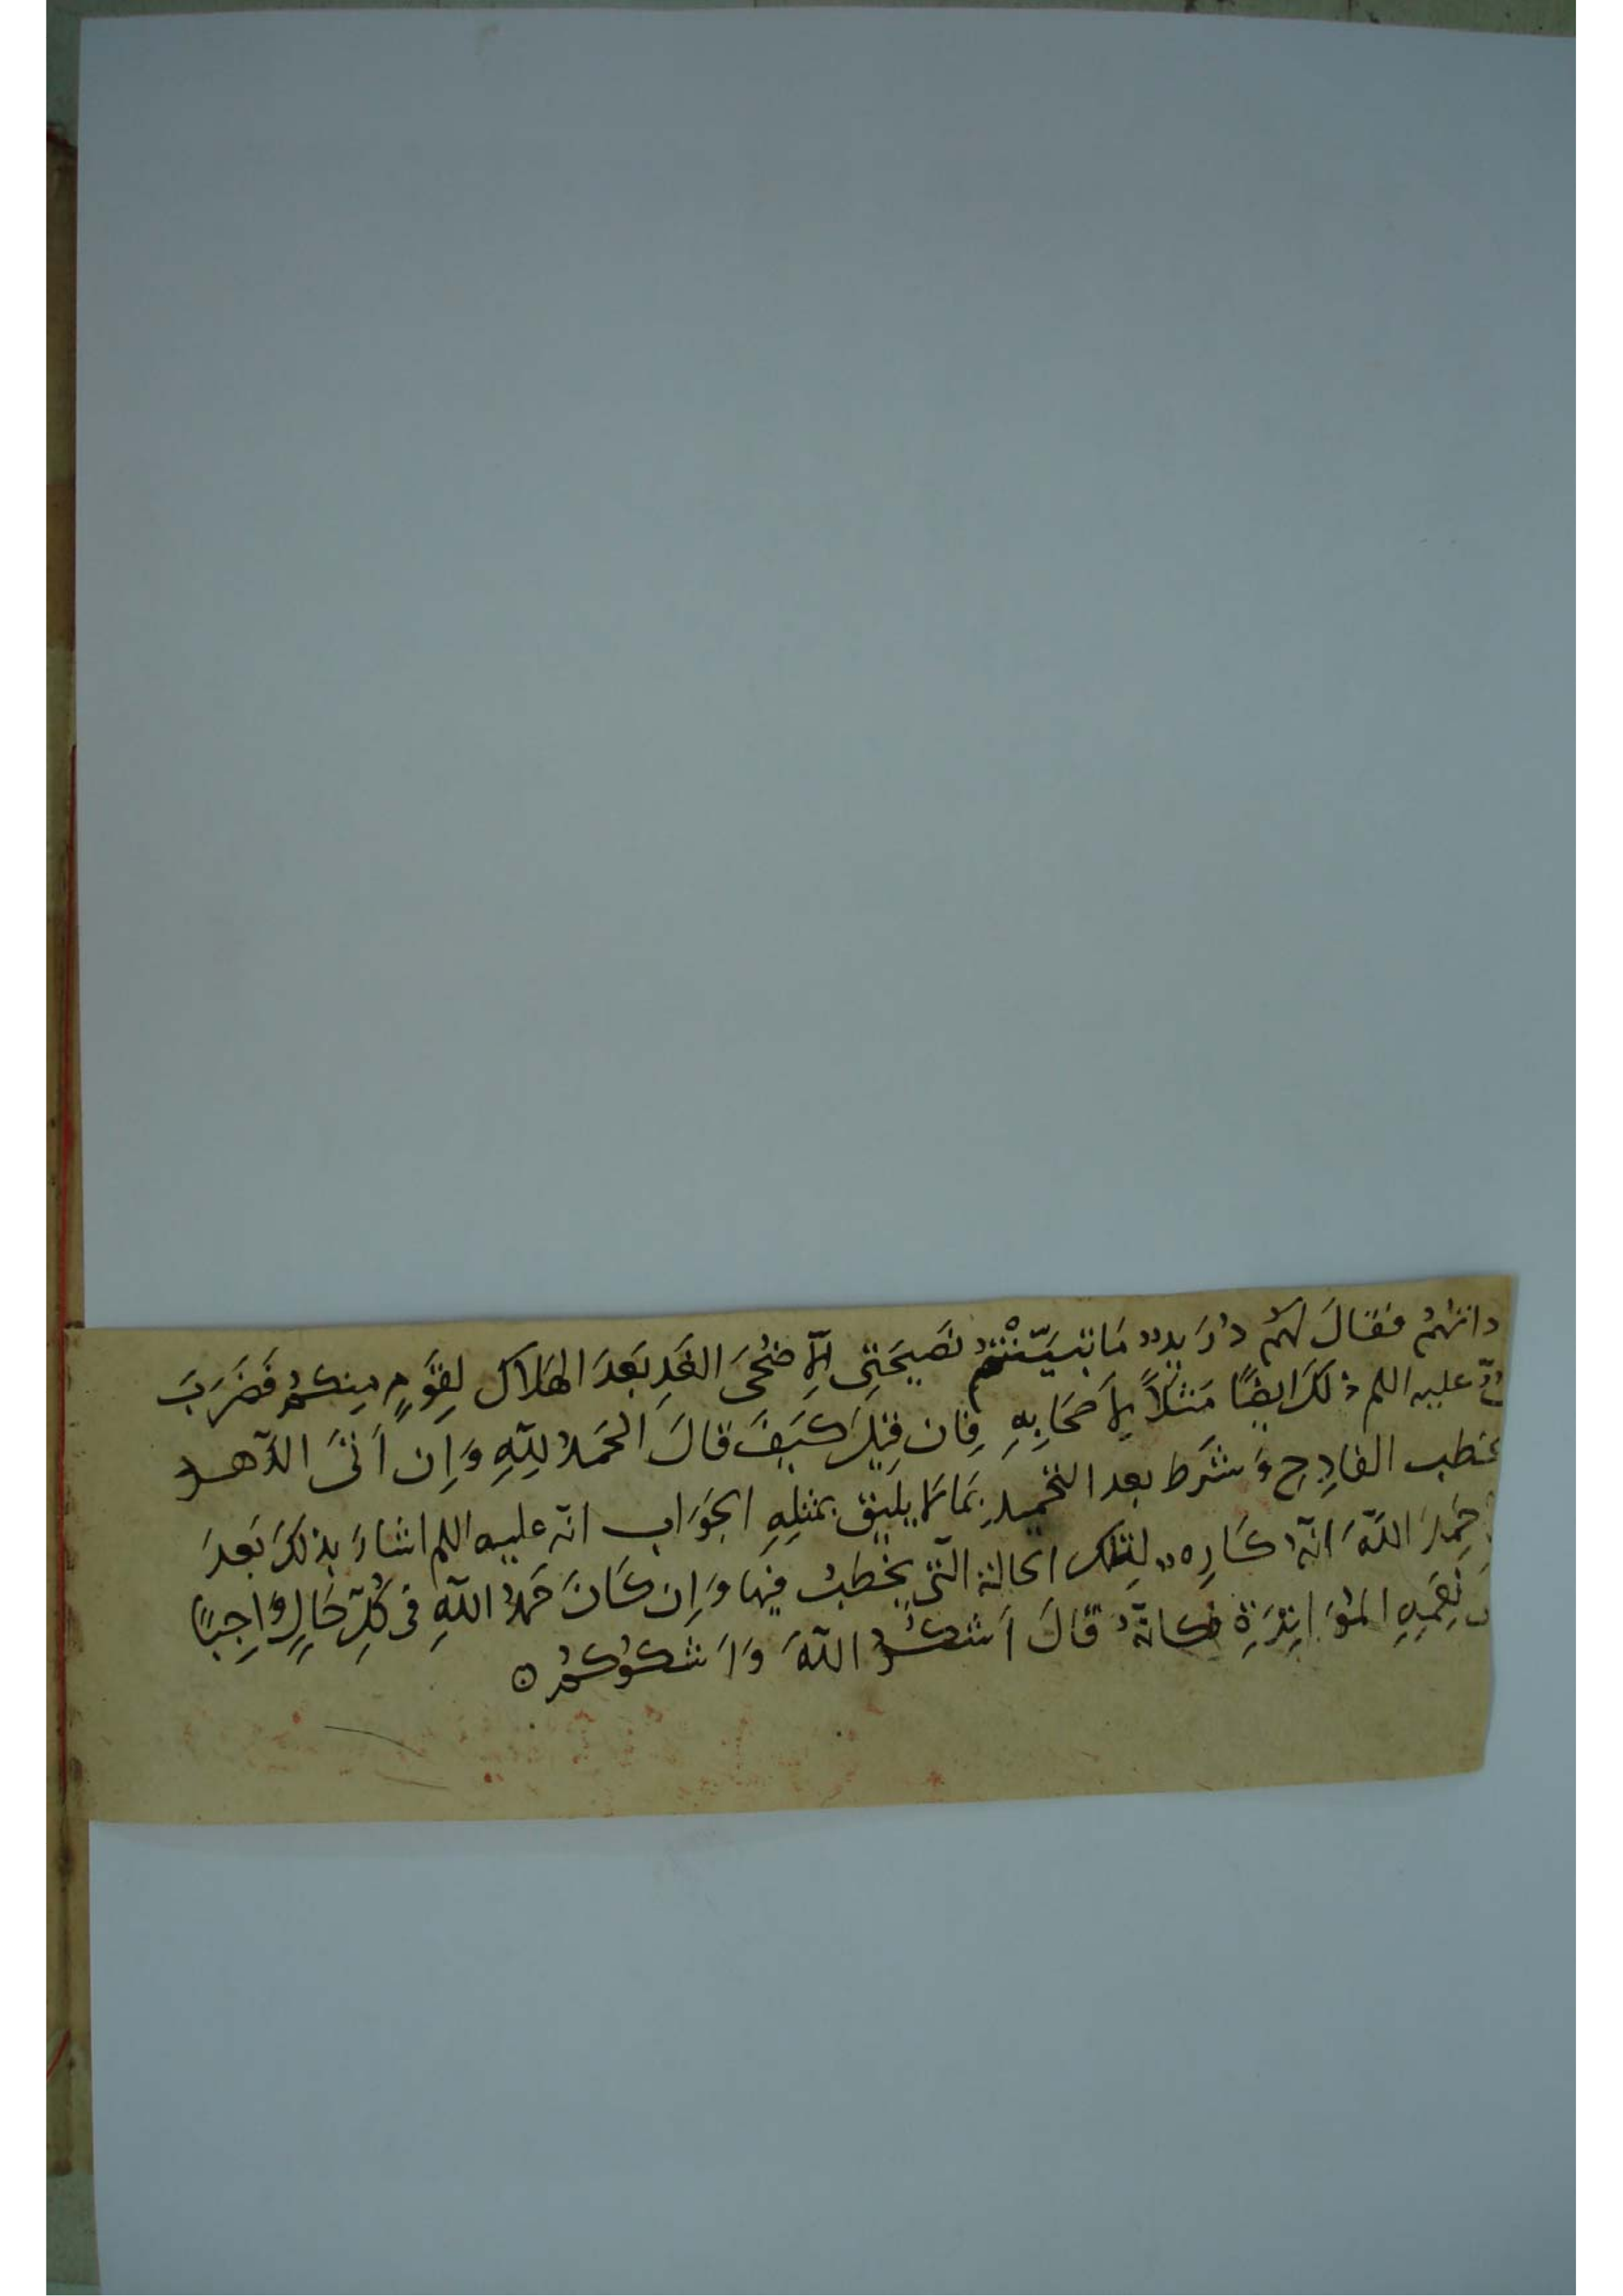 دانتهم فقالَ لهُم دُرَيد مَا تبيّنتُم نَصيحَتِى اِلّا ضُحَى الغَدِ بَعدَ الهَلاَك لِقَومٍ مِنكُم فَضَرَبَ
عليه اللم ذلكَ ايضًا مَثَلاً لِاَصحَابِهِ فان قيلَ كيَفَ قالَ الحَمدُ لِلّهِ وَاِن اَتَى الدّهر
بخطب الفادِحِ وَشَرط بعد التحميدِ بمَا لا يليق بمثلِهِ الجَوَاب انّه عليه اللم اشارَ بذلكَ بَعدَ
حَمِدَ اللّهَ انّهُ كَارِه لِتلك الحالة الّتى يخطبُ فيها وَاِن كَانَ حَمدُ اللّهِ فى كُلّ حَالٍ وَاجِبًا
نِعَمِهِ المُتوَاتِرَةِ فكانّهُ قالَ اَشكرُ اللّهَ وَاَشكُوكُم ه